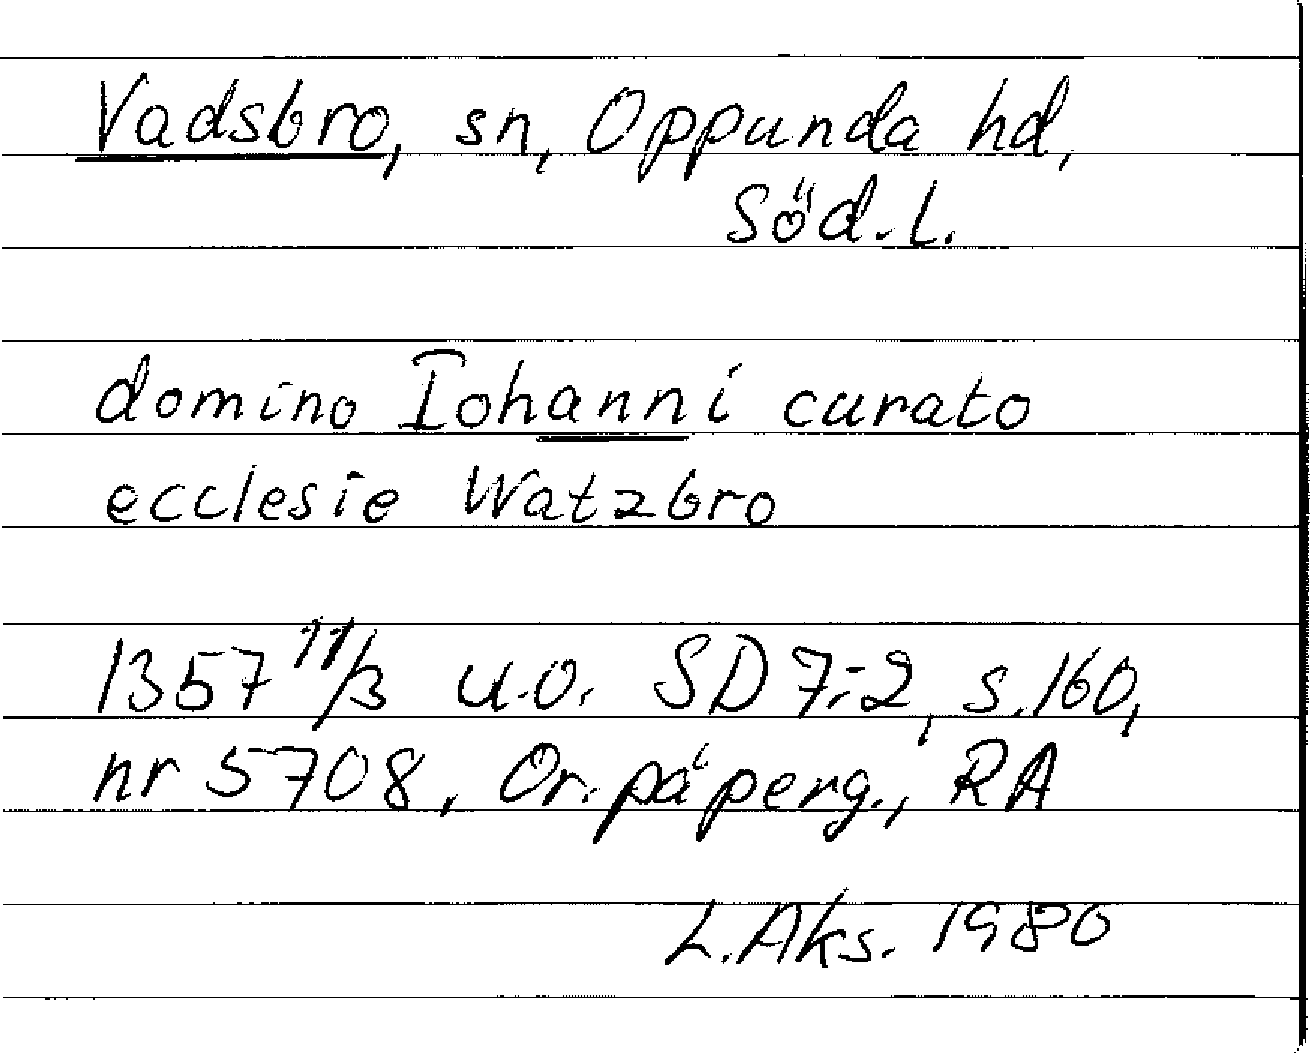 Vadsbro, sn, Oppunda hd,
Söd.l.
domino Iohanni curato
ecclesie Watzbro
1357 11/3 u.o. SD 7:2, s.160,
nr 5708, Or. på perg., RA
L.Aks. 1980